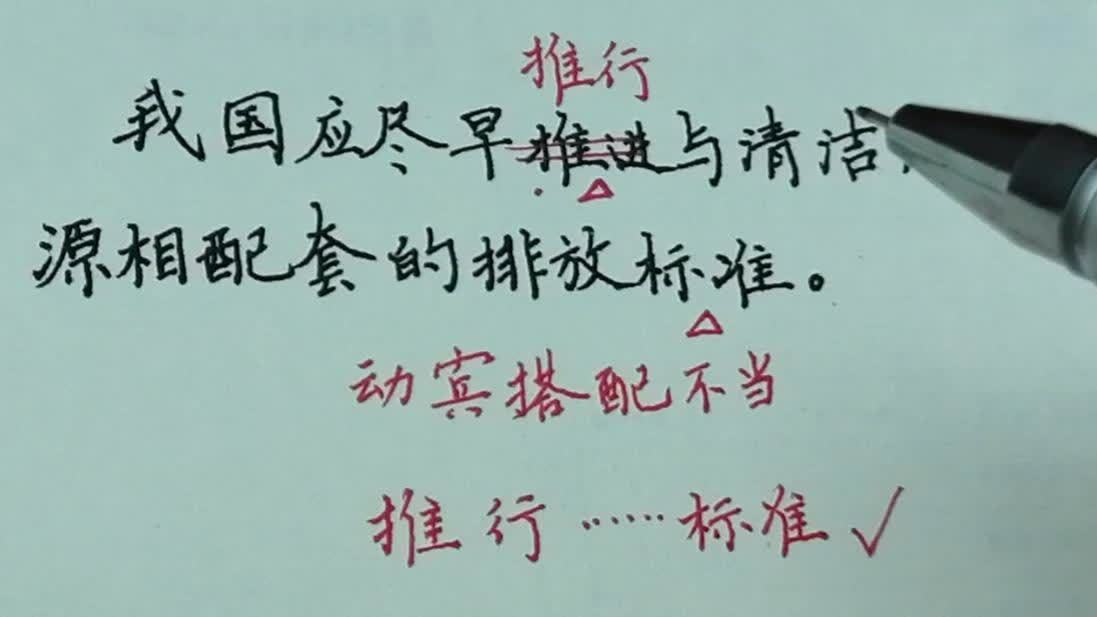 推行
我国应尽早推进与清洁
源相配套的排放标准。
动宾搭配不当
推行……标准✓